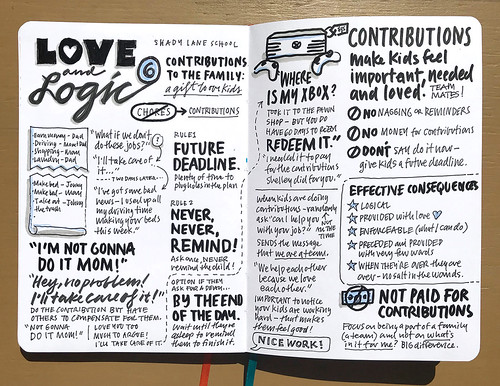 LOVE
and
Logic
SHADY LANE SCHOOL
6
CONTRIBUTIONS
TO THE FAMILY:
a gift to our kids
CHORES → CONTRIBUTIONS
Earn money - Dad
Driving - Mom/Dad
Shopping - Mom
Laundry - Dad
Make bed - Johnny
Make bed - Mom
Take out - Johnny
the trash
"What if we don't
do these jobs?"
"I'll take care of
it..."
TWO DAYS LATER...
"I've got some bad
news - I used up all
my driving time
making your beds
this week."
"I'M NOT GONNA
DO IT MOM!"
"Hey, no problem!
I'll take care of it!"
DO THE CONTRIBUTION BUT HAVE
OTHERS TO COMPENSATE FOR THEM.
"NOT GONNA
DO IT MOM!"
I LOVE YOU TOO
MUCH TO ARGUE!
I'LL TAKE CARE OF IT.
RULE 1
FUTURE
DEADLINE.
Plenty of time to
plug holes in the plan
RULE 2
NEVER,
NEVER,
REMIND!
Ask once, NEVER
remind the child!
OPTION IF THEY
ASK FOR A DEADLINE...
BY THE END
OF THE DAY.
Wait until they're
asleep to remind
them to finish it.
"WHERE
IS MY XBOX?
TOOK IT TO THE PAWN
SHOP - BUT YOU DO
HAVE 60 DAYS TO
REDEEM IT."
"I needed it to pay
for the contributions
Shelley did for you."
When kids are doing
contributions - randomly
ask "can I help you
with your job?"
NOT
ALL THE
TIME
SENDS the message
that we are a team.
"We help each other
because we love
each other."
IMPORTANT to notice
your kids are working
hard - that makes
them feel good!
NICE WORK!
CONTRIBUTIONS
Make kids feel
important, needed
and loved.
TEAM
MATES!
NO NAGGING OR REMINDERS
NO MONEY for contributions
DON'T SAY do it now -
give kids a future deadline.
EFFECTIVE CONSEQUENCES
LOGICAL
PROVIDED with love
ENFORCEABLE (what I can do)
PRECEDED and PROVIDED
with very few words
WHEN THEY'RE OVER they are
over - no salt in the wounds.
NOT PAID FOR
CONTRIBUTIONS
Focus on being a part of a family
(a team) and not on what's
in it for me? BIG difference.